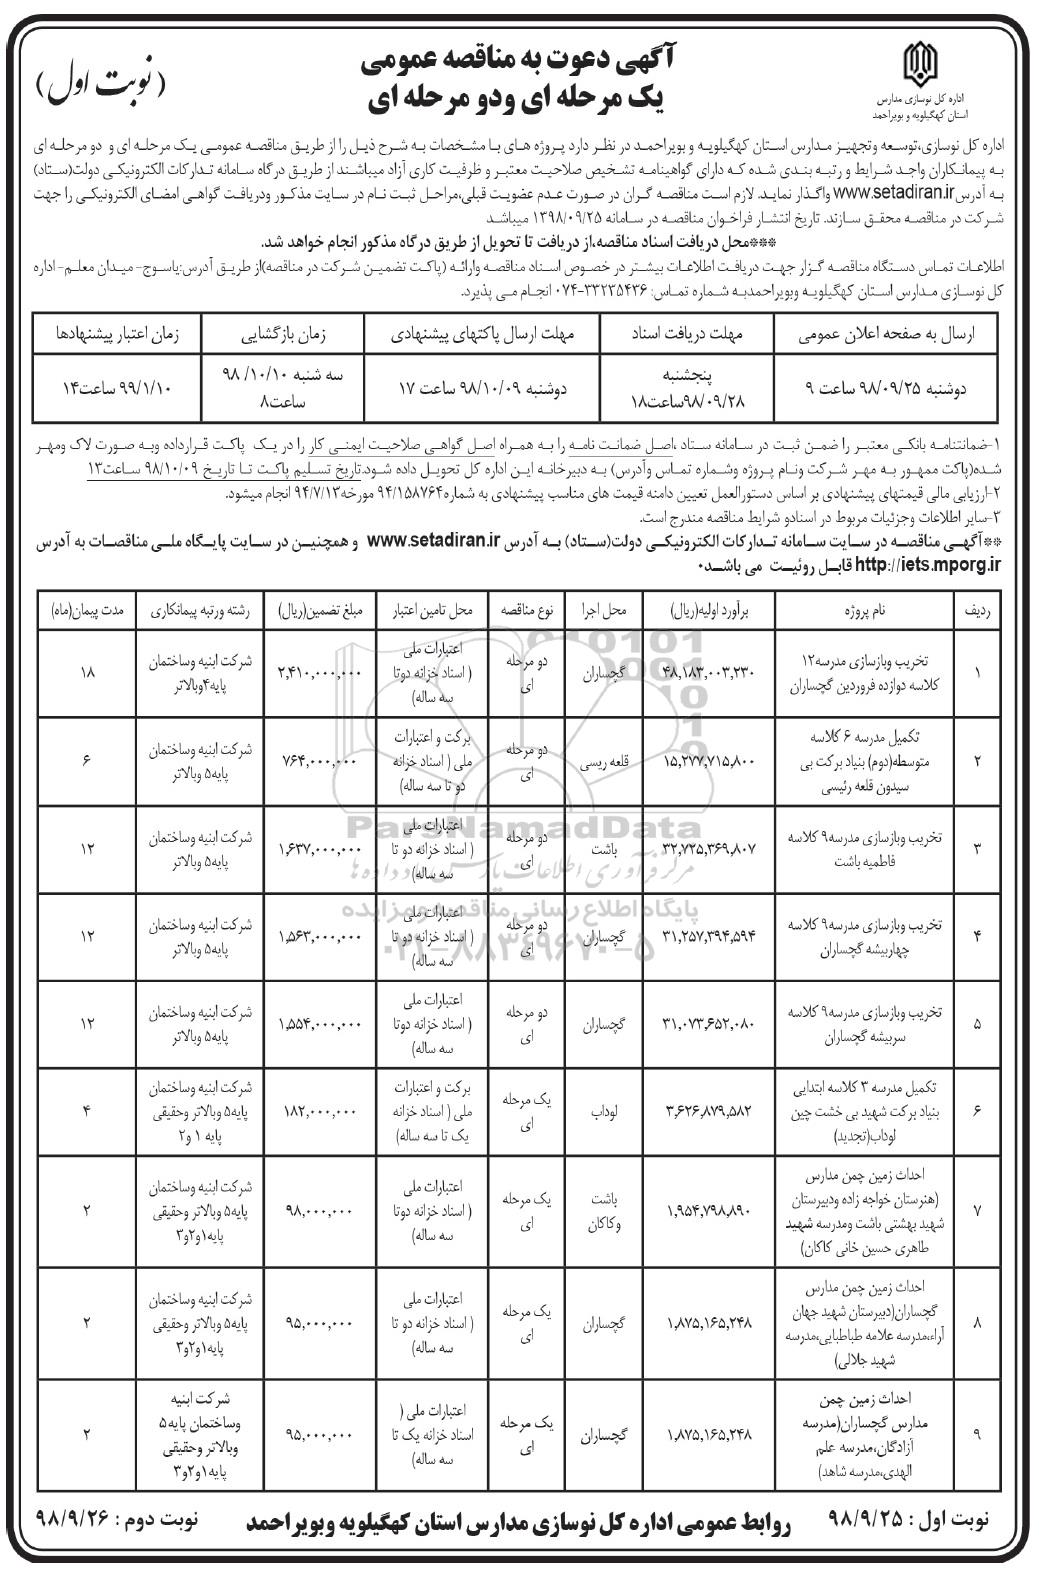 اداره کل نوسازی مدارس
استان کهگیلویه و بویراحمد
آگهی دعوت به مناقصه عمومی
یک مرحله ای ودو مرحله ای
(نوبت اول)
اداره کل نوسازی،توسعه وتجهیز مدارس استان کهگیلویه و بویراحمد در نظر دارد پروژه های با مشخصات به شرح ذیل را از طریق مناقصه عمومی یک مرحله ای و دو مرحله ای
به پیمانکاران واجد شرایط و رتبه بندی شده که دارای گواهینامه تشخیص صلاحیت معتبر و ظرفیت کاری آزاد میباشند از طریق درگاه سامانه تدارکات الکترونیکی دولت(ستاد)
به آدرس www.setadiran.ir واگذار نماید. لازم است مناقصه گران در صورت عدم عضویت قبلی،مراحل ثبت نام در سایت مذکور ودریافت گواهی امضای الکترونیکی را جهت
شرکت در مناقصه محقق سازند. تاریخ انتشار فراخوان مناقصه در سامانه ۱۳۹۸/۰۹/۲۵ میباشد
***محل دریافت اسناد مناقصه،از دریافت تا تحویل از طریق درگاه مذکور انجام خواهد شد.
اطلاعات تماس دستگاه مناقصه گزار جهت دریافت اطلاعات بیشتر در خصوص اسناد مناقصه وارائه (پاکت تضمین شرکت در مناقصه)از طریق آدرس:یاسوج- میدان معلم-اداره
کل نوسازی مدارس استان کهگیلویه وبویراحمدبه شماره تماس: ۳۳۲۳۵۴۳۶-۰۷۴ انجام می پذیرد.
ارسال به صفحه اعلان عمومی | مهلت دریافت اسناد | مهلت ارسال پاکتهای پیشنهادی | زمان بازگشایی | زمان اعتبار پیشنهادها
دوشنبه ۹۸/۰۹/۲۵ ساعت ۹ | پنجشنبه ۹۸/۰۹/۲۸ساعت۱۸ | دوشنبه ۹۸/۱۰/۰۹ ساعت ۱۷ | سه شنبه ۹۸/۱۰/۱۰ ساعت۸ | ۹۹/۱/۱۰ ساعت۱۴
۱-ضمانتنامه بانکی معتبر را ضمن ثبت در سامانه ستاد ،اصل ضمانت نامه را به همراه اصل گواهی صلاحیت ایمنی کار را در یک پاکت قرارداده وبه صورت لاک ومهر
شده(پاکت ممهور به مهر شرکت ونام پروژه وشماره تماس وآدرس) به دبیرخانه این اداره کل تحویل داده شود.تاریخ تسلیم پاکت تا تاریخ ۹۸/۱۰/۰۹ ساعت۱۳
۲-ارزیابی مالی قیمتهای پیشنهادی بر اساس دستورالعمل تعیین دامنه قیمت های مناسب پیشنهادی به شماره۹۴/۱۵۸۷۶۴ مورخه۹۴/۷/۱۳ انجام میشود.
۳-سایر اطلاعات وجزئیات مربوط در اسنادو شرایط مناقصه مندرج است.
**آگهی مناقصه در سایت سامانه تدارکات الکترونیکی دولت(ستاد) به آدرس www.setadiran.ir و همچنین در سایت پایگاه ملی مناقصات به آدرس
http://iets.mporg.ir قابل روئیت می باشد۰
ردیف | نام پروژه | برآورد اولیه(ریال) | محل اجرا | نوع مناقصه | محل تامین اعتبار | مبلغ تضمین(ریال) | رشته ورتبه پیمانکاری | مدت پیمان(ماه)
۱ | تخریب وبازسازی مدرسه۱۲ کلاسه دوازده فروردین گچساران | ۴۸,۱۸۳,۰۰۳,۲۳۰ | گچساران | دو مرحله ای | اعتبارات ملی ( اسناد خزانه دوتا سه ساله) | ۲,۴۱۰,۰۰۰,۰۰۰ | شرکت ابنیه وساختمان پایه۴وبالاتر | ۱۸
۲ | تکمیل مدرسه ۶ کلاسه متوسطه(دوم) بنیاد برکت بی سیدون قلعه رئیسی | ۱۵,۲۷۷,۷۱۵,۸۰۰ | قلعه ریسی | دو مرحله ای | برکت و اعتبارات ملی ( اسناد خزانه دو تا سه ساله) | ۷۶۴,۰۰۰,۰۰۰ | شرکت ابنیه وساختمان پایه۵ وبالاتر | ۶
۳ | تخریب وبازسازی مدرسه۹ کلاسه فاطمیه باشت | ۳۲,۷۲۵,۳۶۹,۸۰۷ | باشت | دو مرحله ای | اعتبارات ملی ( اسناد خزانه دو تا سه ساله) | ۱,۶۳۷,۰۰۰,۰۰۰ | شرکت ابنیه وساختمان پایه۵ وبالاتر | ۱۲
۴ | تخریب وبازسازی مدرسه۹ کلاسه چهاربیشه گچساران | ۳۱,۲۵۷,۳۹۴,۵۹۴ | گچساران | دو مرحله ای | اعتبارات ملی ( اسناد خزانه دو تا سه ساله) | ۱,۵۶۳,۰۰۰,۰۰۰ | شرکت ابنیه وساختمان پایه۵ وبالاتر | ۱۲
۵ | تخریب وبازسازی مدرسه۹ کلاسه سربیشه گچساران | ۳۱,۰۷۳,۶۵۲,۰۸۰ | گچساران | دو مرحله ای | اعتبارات ملی ( اسناد خزانه دوتا سه ساله) | ۱,۵۵۴,۰۰۰,۰۰۰ | شرکت ابنیه وساختمان پایه۵ وبالاتر | ۱۲
۶ | تکمیل مدرسه ۳ کلاسه ابتدایی بنیاد برکت شهید بی خشت چین لوداب(تجدید) | ۳,۶۲۶,۸۷۹,۵۸۲ | لوداب | یک مرحله ای | برکت و اعتبارات ملی ( اسناد خزانه یک تا سه ساله) | ۱۸۲,۰۰۰,۰۰۰ | شرکت ابنیه وساختمان پایه۵ وبالاتر وحقیقی پایه ۱ و۲ | ۴
۷ | احداث زمین چمن مدارس (هنرستان خواجه زاده ودبیرستان شهید بهشتی باشت ومدرسه شهید طاهری حسین خانی کاکان) | ۱,۹۵۴,۷۹۸,۸۹۰ | باشت وکاکان | یک مرحله ای | اعتبارات ملی ( اسناد خزانه دوتا سه ساله) | ۹۸,۰۰۰,۰۰۰ | شرکت ابنیه وساختمان پایه۵ وبالاتر وحقیقی پایه۱و۲و۳ | ۲
۸ | احداث زمین چمن مدارس گچساران(دبیرستان شهید جهان آراء،مدرسه علامه طباطبایی،مدرسه شهید جلالی) | ۱,۸۷۵,۱۶۵,۲۴۸ | گچساران | یک مرحله ای | اعتبارات ملی ( اسناد خزانه دو تا سه ساله) | ۹۵,۰۰۰,۰۰۰ | شرکت ابنیه وساختمان پایه۵ وبالاتر وحقیقی پایه۱و۲و۳ | ۲
۹ | احداث زمین چمن مدارس گچساران(مدرسه آزادگان،مدرسه علم الهدی،مدرسه شاهد) | ۱,۸۷۵,۱۶۵,۲۴۸ | گچساران | یک مرحله ای | اعتبارات ملی ( اسناد خزانه یک تا سه ساله) | ۹۵,۰۰۰,۰۰۰ | شرکت ابنیه وساختمان پایه۵ وبالاتر وحقیقی پایه۱و۲و۳ | ۲
ParsNamadData
مرکز فرآوری اطلاعات پارس نماد داده ها
پایگاه اطلاع رسانی مناقصه و مزایده
۰۲۱-۸۸۳۴۹۶۷۰-۵
نوبت اول : ۹۸/۹/۲۵ روابط عمومی اداره کل نوسازی مدارس استان کهگیلویه وبویراحمد نوبت دوم : ۹۸/۹/۲۶